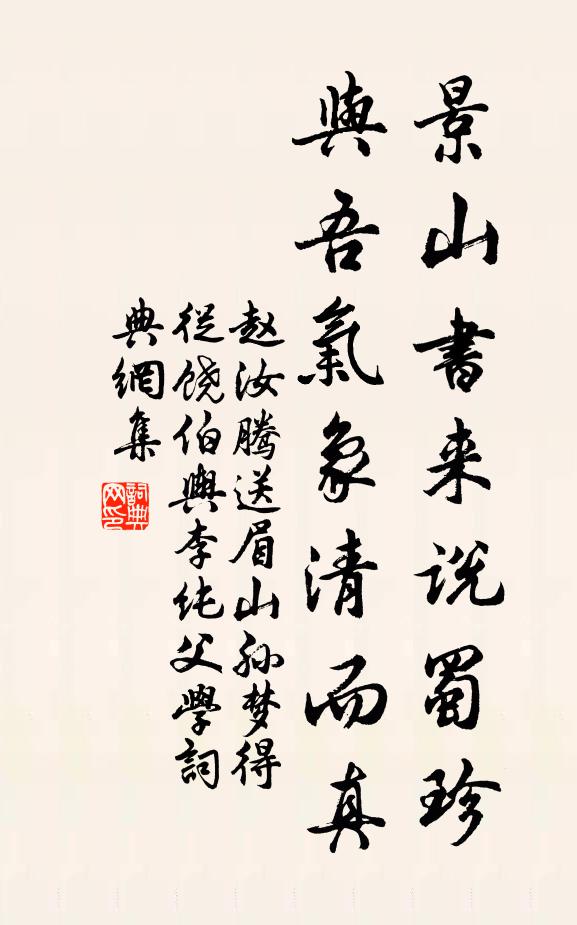 景山書来说蜀珍
與吾氣象清而真
赵汝騰送眉山孙梦得
從饶伯與李纯父學詞
典網集
詞典网印